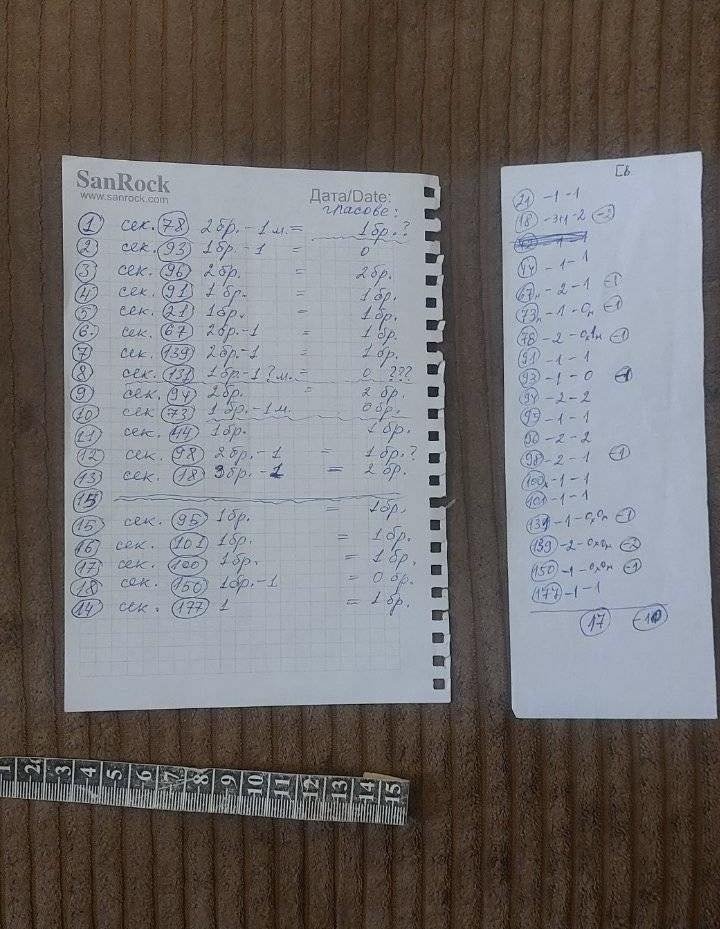 SanRock
www.sanrock.com
Дата/Date:
гласове:
1 сек. 78 2бр. - 1 м. = 1бр.?
2 сек. 93 1бр. - 1 = 0
3 сек. 96 2бр. = 2бр.
4 сек. 91 1бр. = 1бр.
5 сек. 21 1бр. = 1бр.
6. сек. 67 2бр. - 1 = 1бр.
7 сек. 139 2бр. - 1 = 1бр.
8 сек. 131 1бр. - 1? м. = 0 ???
9 сек. 94 2бр. = 2бр.
10 сек. 73 1бр. - 1м. 0бр.
11 сек. 44 1бр. 1бр.
12 сек. 98 2бр. - 1 = 1бр.?
13 сек. 18 3бр. - 1 = 2бр.
15
15 сек. 95 1бр. = 1бр.
16 сек. 101 1бр. = 1бр.
17 сек. 100 1бр. = 1бр.
18 сек. 150 1бр. - 1 = 0бр.
14 сек. 177 1 = 1бр.
21 - 1 - 1
18 - 2 -2
44 - 1 - 1
67 - 2 - 1 -1
73 - 1 - 0 -1
78 - 2 - -1
91 - 1 - 1
93 - 1 - 0 -1
94 - 2 - 2
95 - 1 - 1
96 - 2 - 2
98 - 2 - 1 -1
100 - 1 - 1
101 - 1 - 1
131 - 1 - -1
139 - 2 - -2
150 - 1 - -1
177 - 1 - 1
17 -10
15 14 13 12 11 10 9 8 7 6 5 4 3 2 1